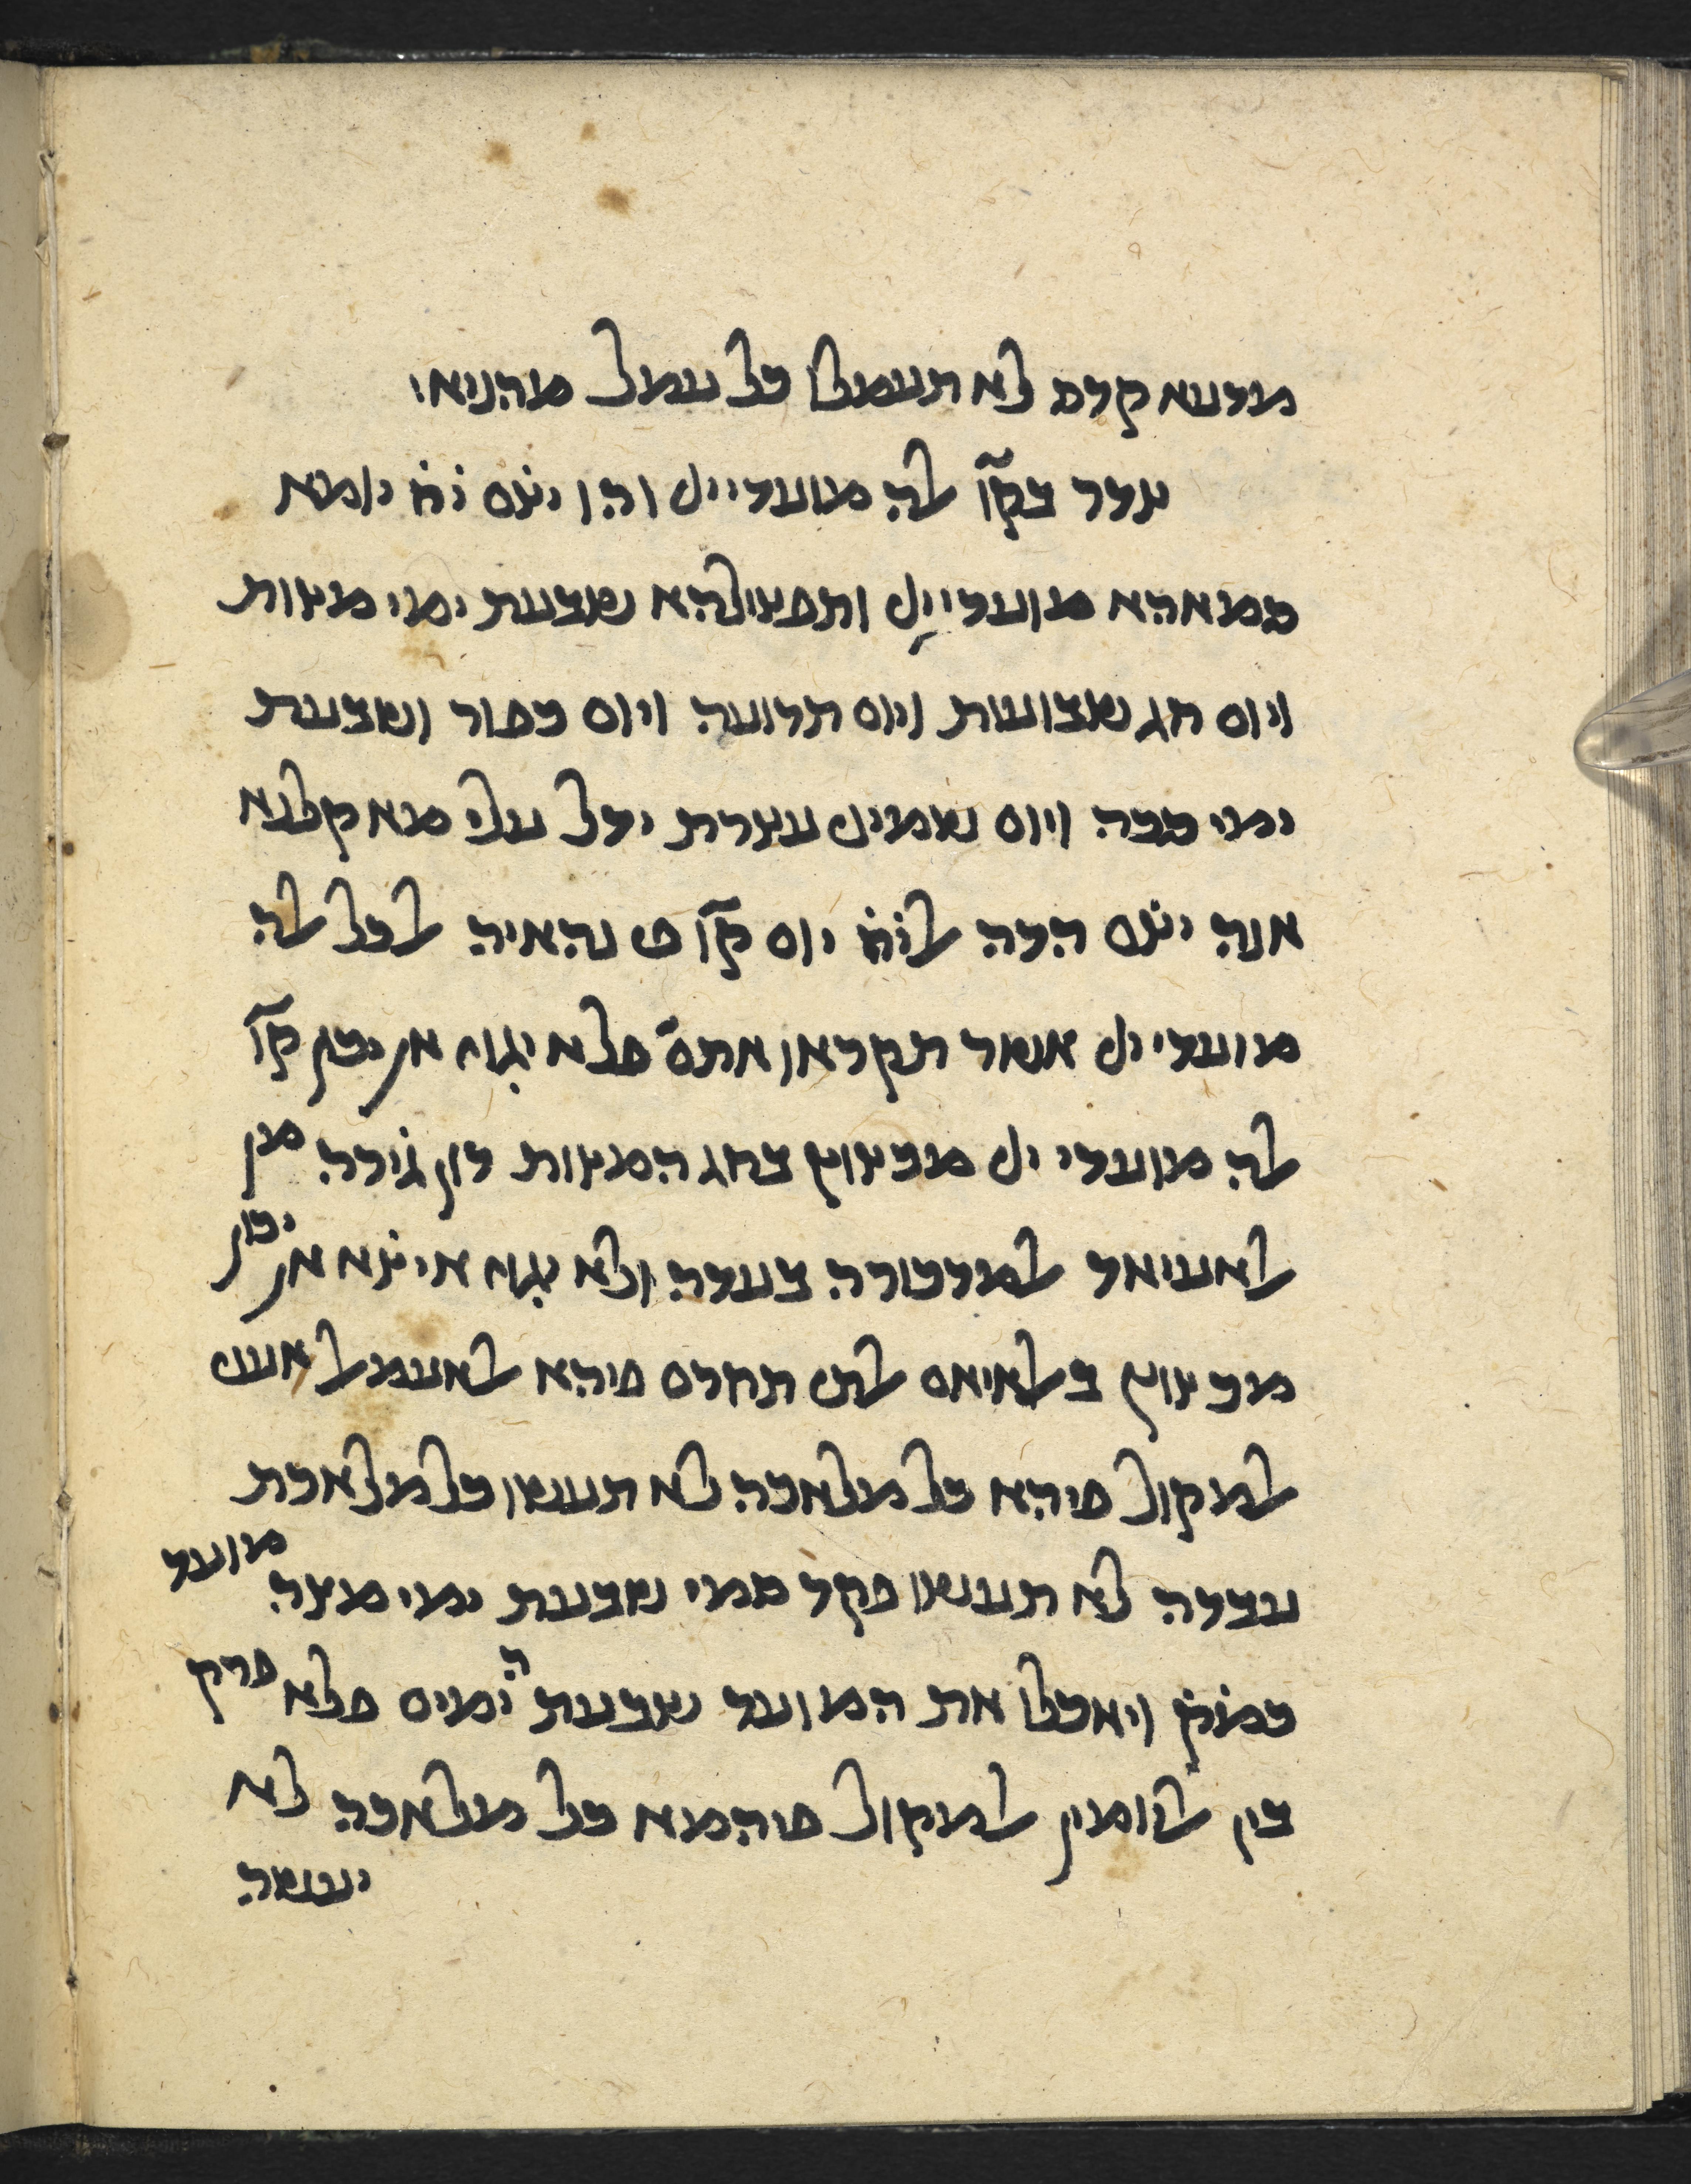 מדעא קדס לא תעמלו כל עמל מהניא׃
צדר בקו' אלה מועדי יי והו יצם יׄחׄ יומא
סמאהא מועדי יי ותפצילהא שבעת ימי מצות
ויום חג שבועות ויום תרועה ויום כפור ושבעת
ימי סכה ויום שמיני עצרת ידל עלי מא קלנא
אנה יצׄם הדה אליׄחׄ יום קו' פי נהאיה אלכל אלה
מועדי יי אשר תקראו אתם פלא יגוז אן יכון קו'
אלה מועדי יי מכצוץ בחג המצות דון גׄירה מן
אלאעיאד אלמדכורה בעדה ולא יגוז איצׄא אן יכון
מכצוץ באלאיאם אלתי תחרם פיהא אלאעמאל אעני
אלמקול פיהא כל מלאכה לא תעשו כל מלאכת
עבדה לא תעשו פקד סמי שבעת ימי מצה מועד
כמׄקׄ ויאכלו את המועד שבעת הימים פלא פרק
בין אליומין אלמקול פיהמא כל מלאכה לא
יעשה